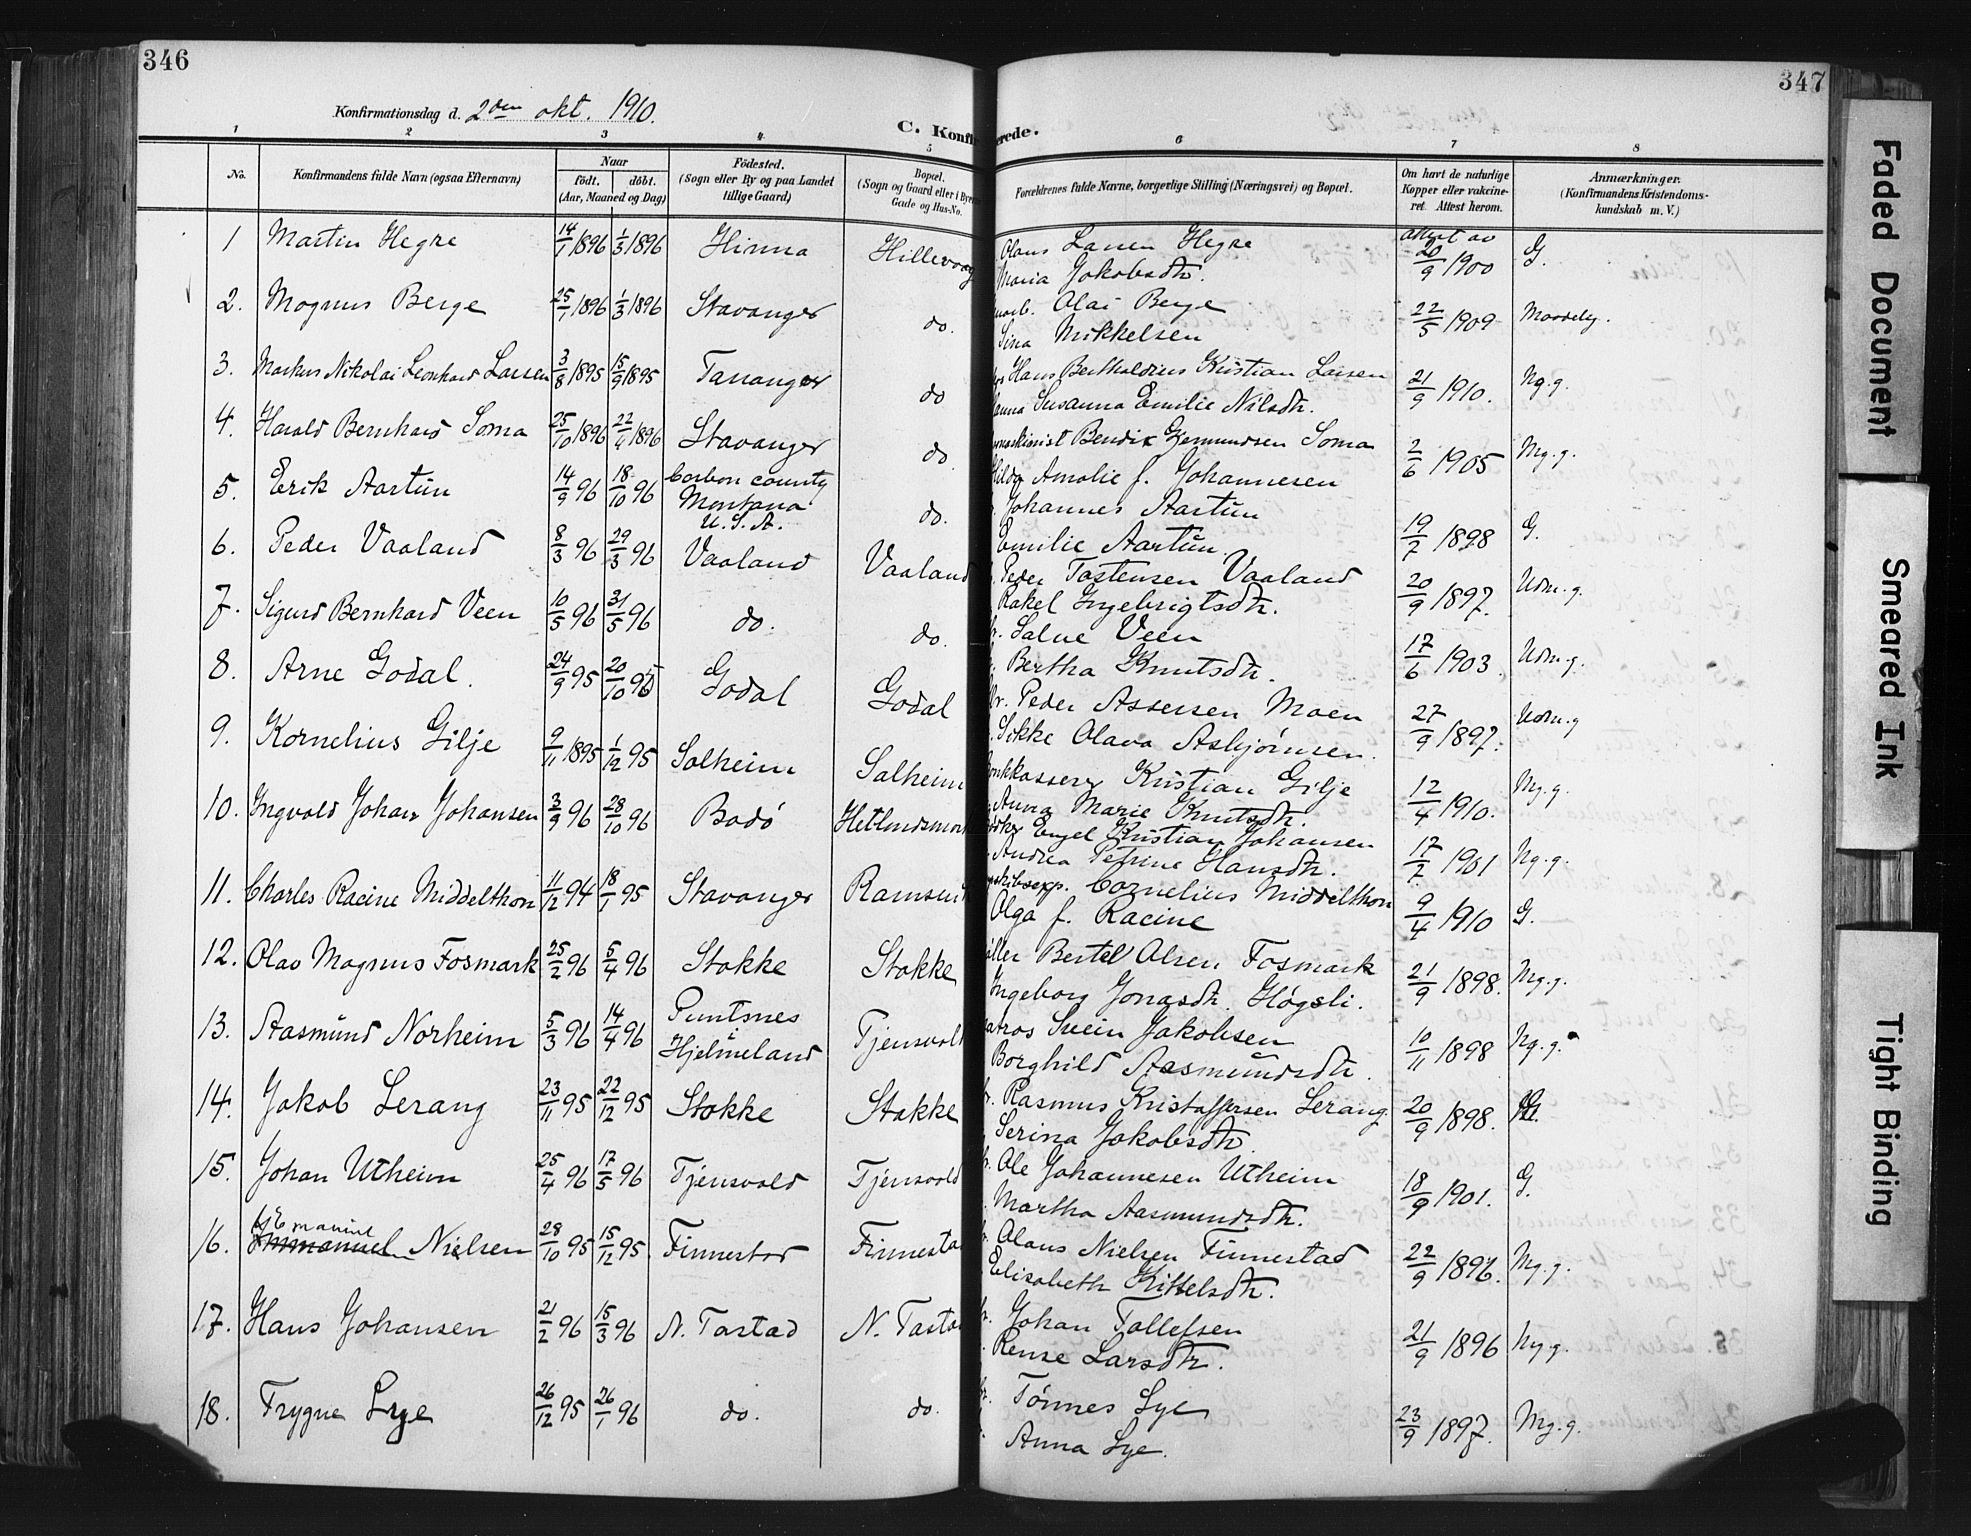 346
347
Konfirmationsdag d. 2den okt. 1910.
C. Konfir erede.
1 2 3 4 5 6 7 8
No.
Konfirmandens fulde Navn (ogsaa Efternavn)
Naar
födt. döbt.
(Aar, Maaned og Dag)
Födested.
(Sogn eller By og paa Landet
tillige Gaard)
Bopæl.
(Sogn og Gaard eller i Byerne
Gade og Hus-No.
Forældrenes fulde Navne, borgerlige Stilling (Næringsvei) og Bopæl.
Om havt de naturlige
Kopper eller vakcine-
ret. Attest herom.
Anmærkninger.
(Konfirmandens Kristendoms-
kundskab m. V.)
1 Martin Hegre 14/1 1896 1/3 1896 Hinna Hillevaag Olaus Hegre attest av 20/9 1900 G.
Maria Jakobsdtr.
2. Magnus Berge 25/1 1896 1/3 1896 Stavanger do. Olai Berge 22/5 1909 Maadelig.
Sina Mikkelsen
3. Markus Nikolai Leonhard Larsen 3/8 1895 15/9 1895 Tananger do Hans Bertholdius Kristian Larsen 21/9 1910. Ng.g.
Susanna Emilie Nilsdtr.
4. Harald Bernhard Soma 25/10 1896 22/4 1896 Stavanger do. maskinist Bendix Gjermundsen Soma 2/6 1905 Mg.g.
Hilda Amalie f. Johannesen
5. Erik Aartun 14/9 96 18/10 96 Carbon county
Montana
U.S.A. do. Johannes Aartun 19/7 1898 G.
Emilie Aartun.
6. Peder Vaaland 8/3 96 29/3 96 Vaaland Vaaland Peder Tostensen Vaaland 20/9 1897. Udm.g.
Rakel Ingebrigtsdtr.
7. Sigurd Bernhard Veen 10/5 96 31/5 96 do. do. Salve Veen 17/6 1903 Udm.g.
Bertha Knutsdtr.
8. Arne Godal. 24/9 95 20/10 95 Godal Godal Peder Assersen Moen 27/9 1897. Udm.g
Sikke Olava Asbjörnsen.
9. Kornelius Gilje 9/11 1895 1/12 95 Solheim Solheim Bankkasserer Kristian Gilje 12/4 1910. Mg.g.
Anna Marie Knutsdtr.
10. Ingvald Johan Johansen 3/9 96 28/10 96 Bodö Hetlandsmark Engel Kristian Johansen 17/7 1901 Ng.g.
Andrea Petrine Hansdtr.
11. Charles Racine Middelthon 11/12 94 18/1 95 Stavanger Ramsund skibsexp. Cornelius Middelthon 9/4 1910 G.
Olga f. Racine
12. Olav Magnus Fosmark 25/2 96 5/4 96 Stokke Stokke Bertel Olsen Fosmark 21/9 1898. Mg.g.
Ingeborg Jonasdtr. Høgsli.
13. Aasmund Norheim 5/3 96 14/4 96 Puntsnes
i
Hjelmeland Tjensvold Matros Svein Jakobsen 10/11 1898 Ng.g.
Borghild Aasmundsdtr.
14. Jakob Lerang 23/11 95 22/12 95 Stokke Stokke Rasmus Kristoffersen Lerang 20/9 1898.
Serina Jakobsdtr
15. Johan Utheim 25/4 96 17/5 96 Tjensvold Tjensvold Ole Johannesen Utheim 18/9 1901. G.
Martha Aasmundsdtr.
16. Emanuel Nielsen 28/10 95 15/12 95 Finnestad Finnestad Olaus Nielsen Finnestad 22/9 1896. Mg.g.
Elisabeth Kittelsdtr.
17. Hans Johansen 21/2 96 15/3 96 N. Tastad N. Tasta Johan Tollefsen 21/9 1896 Ng g.
Larsdtr.
18. Trygve Lye 26/12 95 26/1 96 do. do. Tönnes Lye 23/9 1897. Mg.g.
Anna Lye.
Faded Document
Smeared Ink
Tight Binding